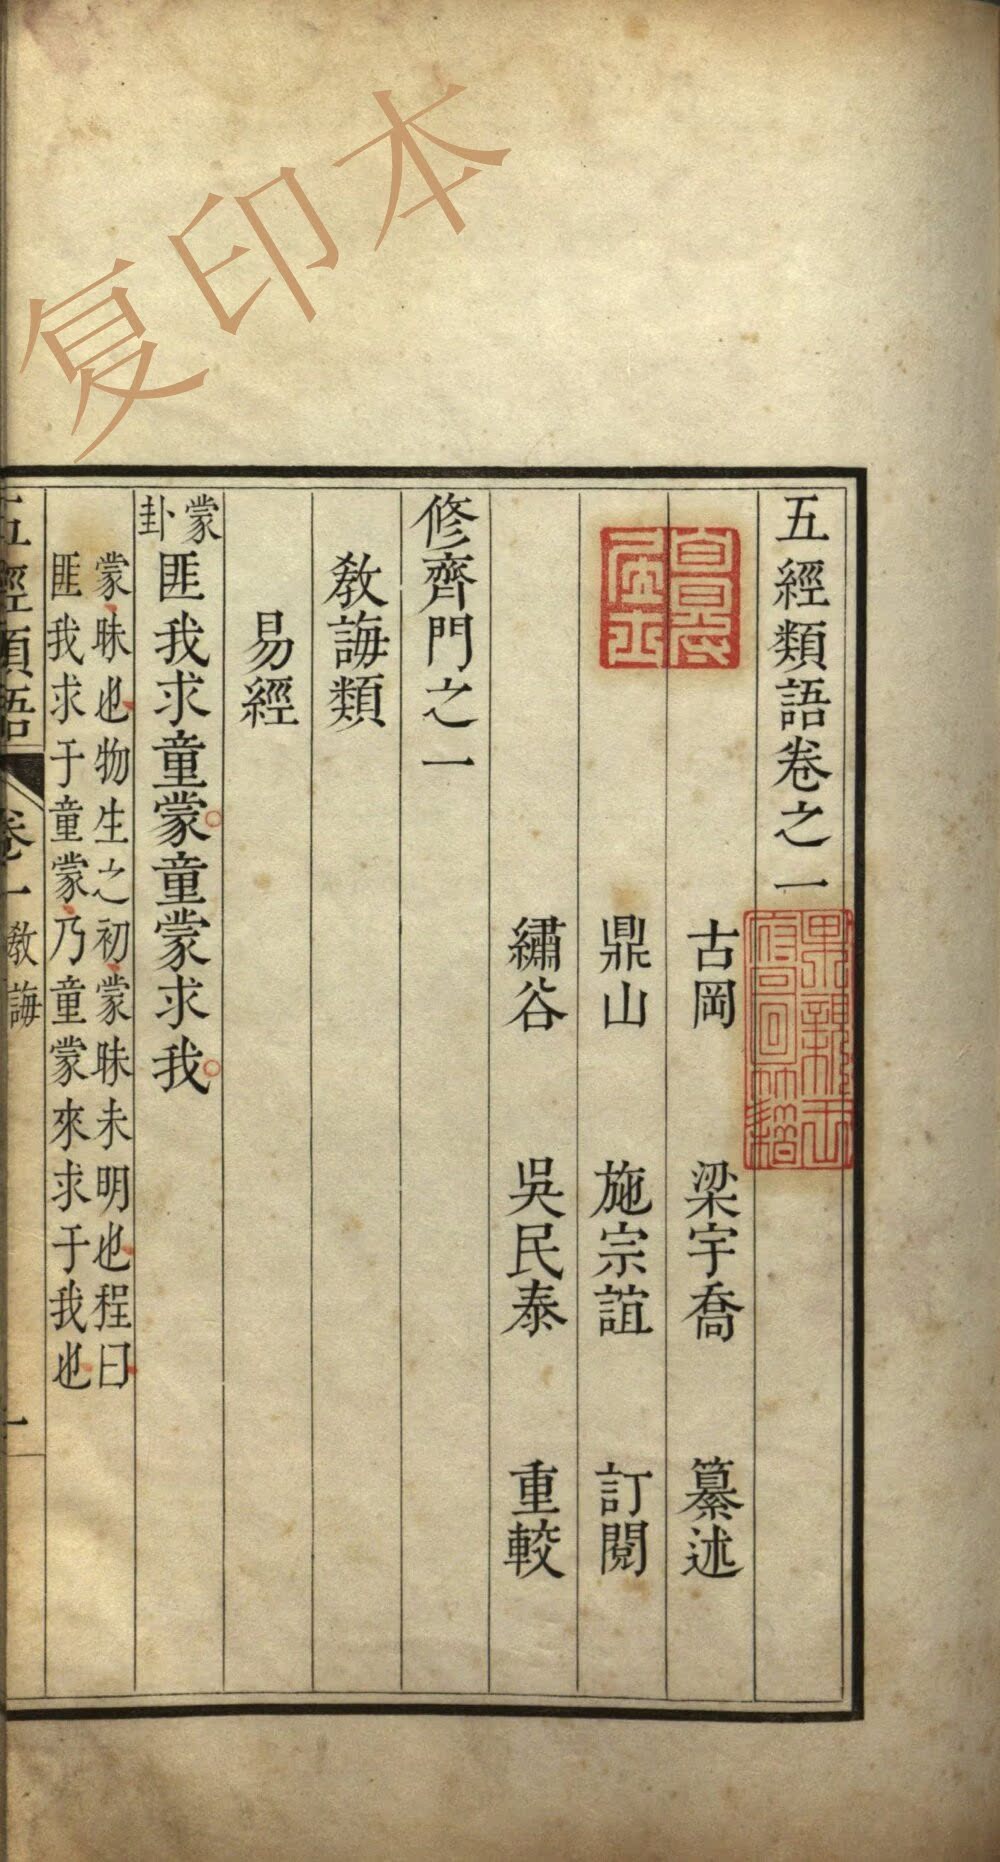 复印本
五經類語卷之一
古岡 梁宇喬 纂述
鼎山 施宗誼 訂閱
繡谷 吳民泰 重較
修齊門之一
敎誨類
易經
蒙卦
匪我求童蒙童蒙求我
蒙昧也物生之初蒙昧未明也程曰
匪我求于童蒙乃童蒙來求于我也
五經類語 卷一 敎誨 一
果親王府圖籍